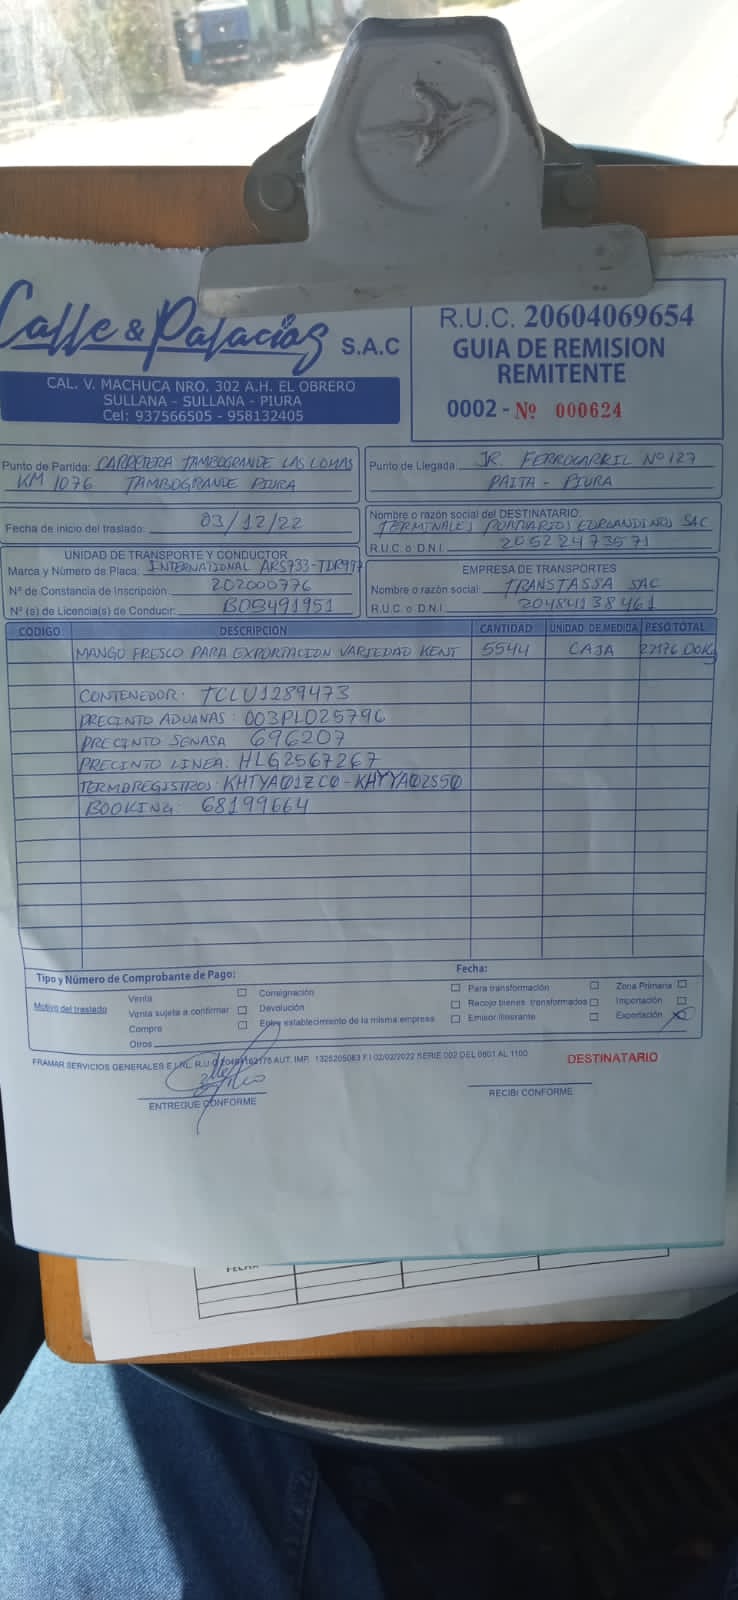 Calle & Palacios S.A.C
CAL. V. MACHUCA NRO. 302 A.H. EL OBRERO
SULLANA - SULLANA - PIURA
Cel: 937566505 - 958132405
R.U.C. 20604069654
GUIA DE REMISION
REMITENTE
0002 - Nº 000624
Punto de Partida: CARRETERA TAMBOGRANDE LAS LOMAS
KM 1076 TAMBOGRANDE PIURA
Punto de Llegada JR. FERROCARRIL Nº 127
PAITA - PIURA
Fecha de inicio del traslado: 03/12/22
Nombre o razón social del DESTINATARIO:
TERMINALES PORTUARIOS EUROANDINOS SAC
R.U.C. o D.N.I. 20522473571
UNIDAD DE TRANSPORTE Y CONDUCTOR
Marca y Número de Placa: INTERNATIONAL ARS733-TDR997
Nº de Constancia de Inscripción: 202000776
Nº (s) de Licencia(s) de Conducir: B03491951
EMPRESA DE TRANSPORTES
Nombre o razón social: TRANSTASSA SAC
R.U.C. o D.N.I. 20484138461
CODIGO DESCRIPCION CANTIDAD UNIDAD DE MEDIDA PESO TOTAL
MANGO FRESCO PARA EXPORTACION VARIEDAD KENT 5544 CAJA
CONTENEDOR: TCLU1289473
PRECINTO ADUANAS: 003PLD25796
PRECINTO SENASA 696207
PRECINTO LINEA: HLG2567267
TERMOREGISTROS: KHTYA01ZC0 - KHYYA02S50
BOOKING: 68199664
Tipo y Número de Comprobante de Pago:
Fecha:
Motivo del traslado
Venta
Venta sujeta a confirmar
Compra
Otros
Consignación
Devolución
Entre establecimiento de la misma empresa
Para transformación
Recojo bienes transformados
Emisor itinerante
Zona Primaria
Importación
Exportación X
FRAMAR SERVICIOS GENERALES E.I.RL. R.U.C AUT. IMP. 1325205083 F.I 02/02/2022 SERIE 002 DEL 0601 AL 1100
DESTINATARIO
ENTREGUE CONFORME
RECIBI CONFORME